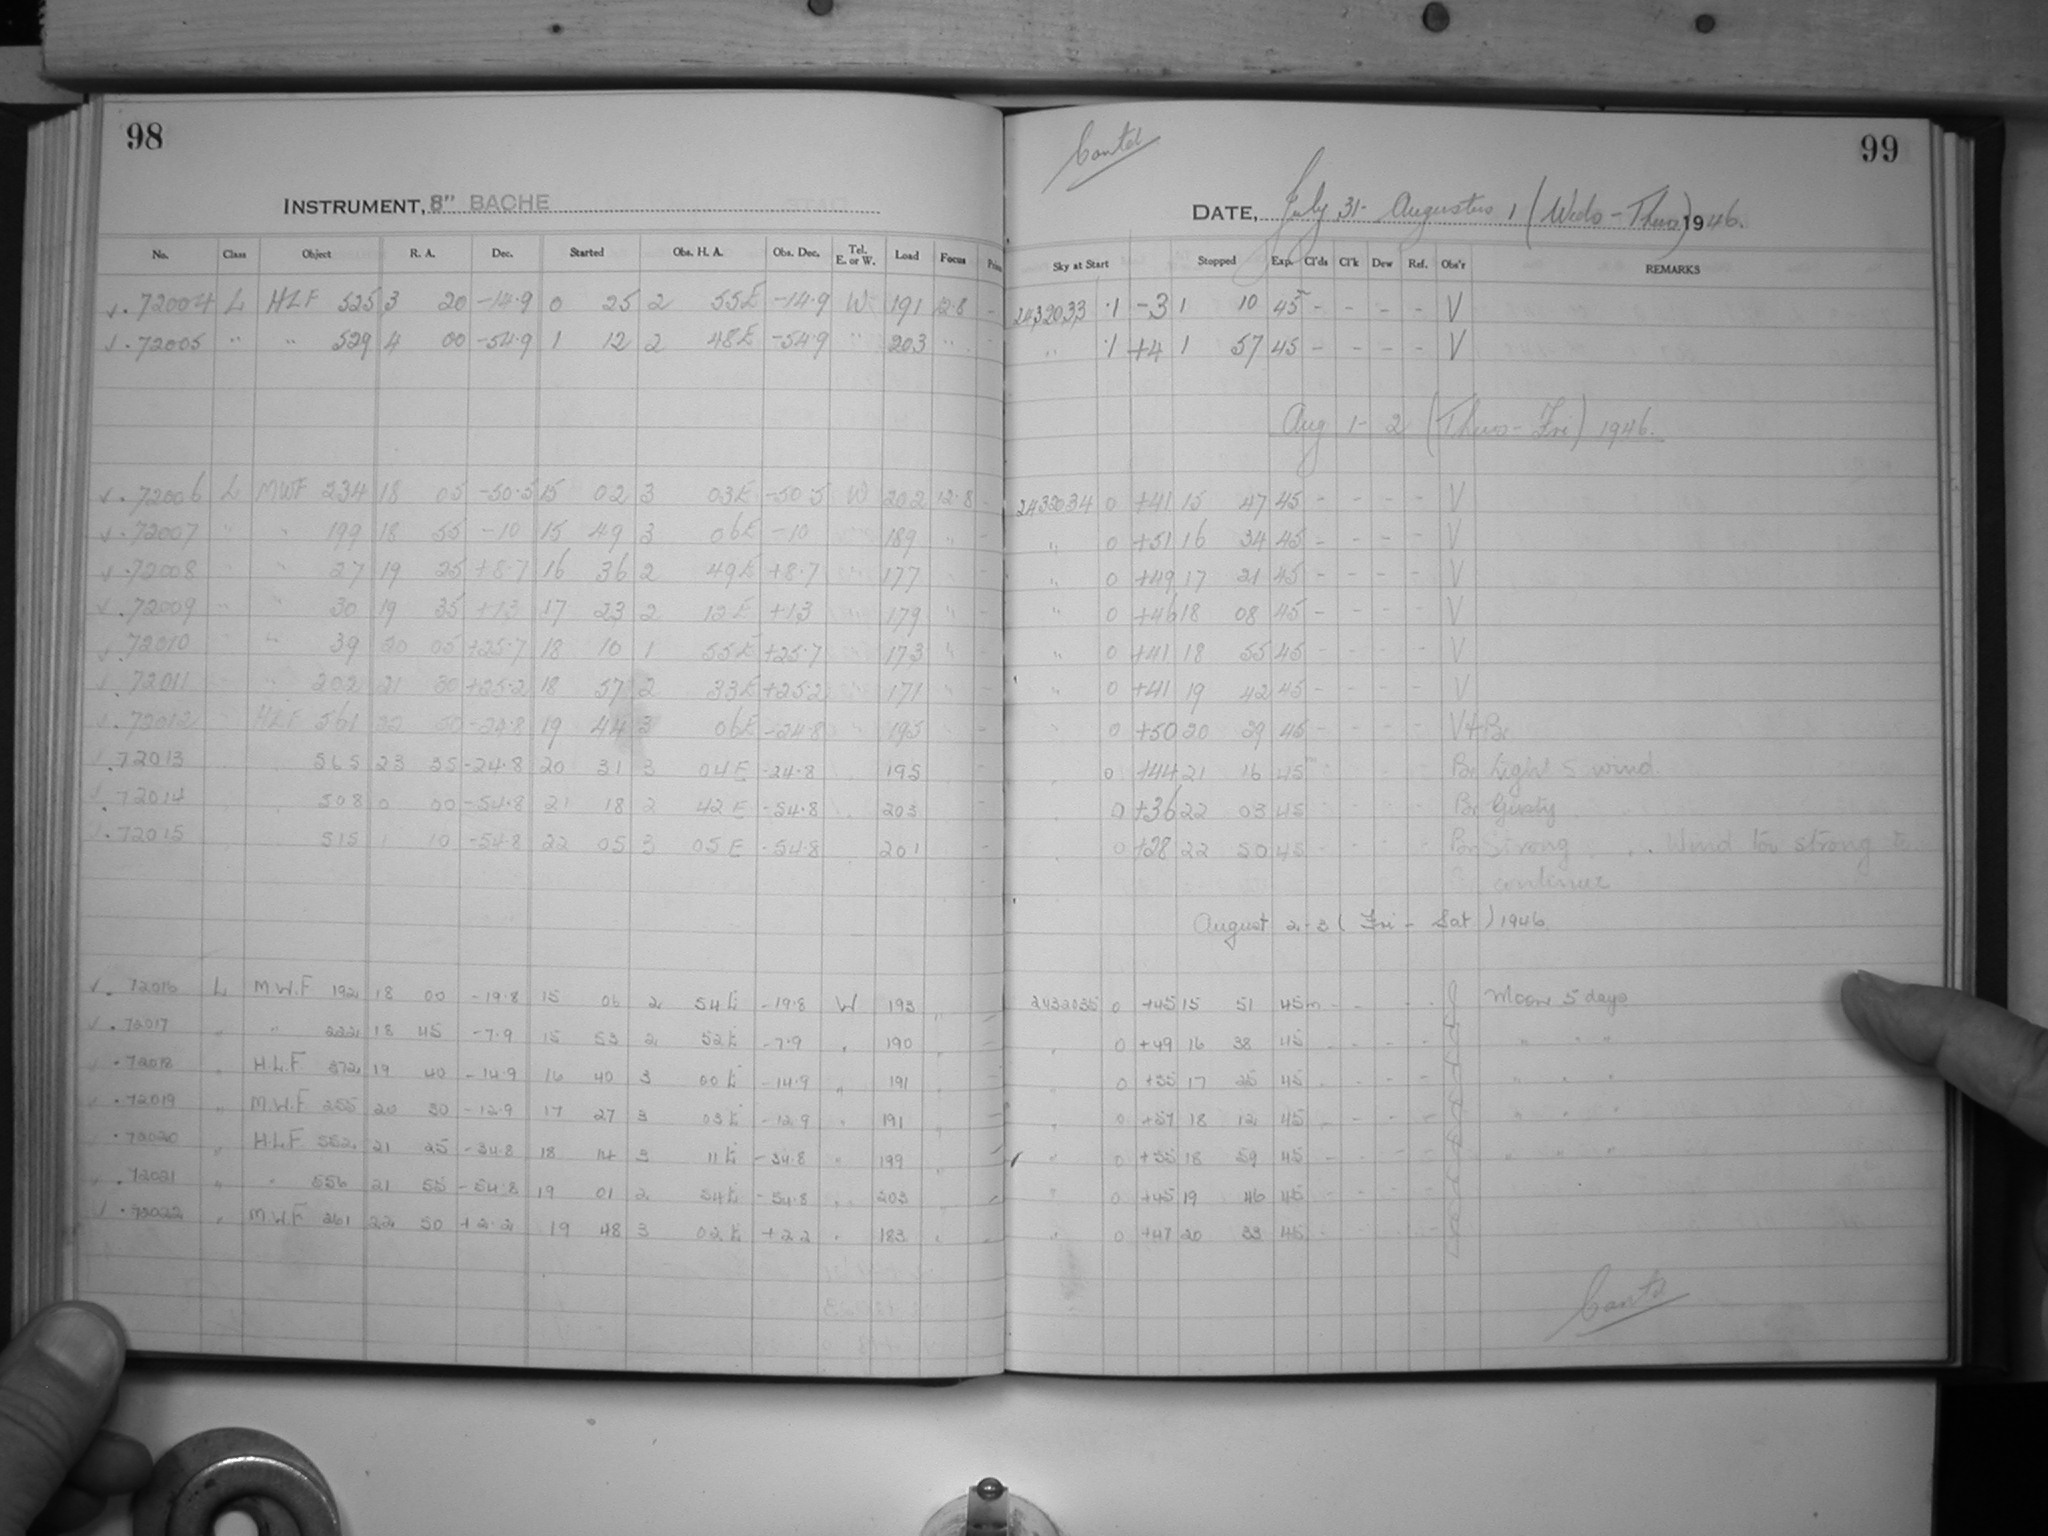 98
INSTRUMENT, 8" BACHE
No. Class Object R. A. Dec. Started Obs. H. A. Obs. Dec. Tel. E. or W. Load Focus
72004 L HLF 525 3 20 -14.9 0 25 2 55E -14.9 W 191 12.8 -
72005 " " 529 4 00 -54.9 1 12 2 48E -54.9 " 203 "
72006 L MWF 234 18 05 -50.5 15 02 3 03E -50.5 W 202 12.8 -
72007 " " 199 18 55 -10 15 49 3 06E -10 189 " -
72008 " " 27 19 25 +8.7 16 36 2 49E +8.7 " 177 " -
72009 " " 30 19 35 +13 17 23 2 12E +13 " 179 " -
72010 " 39 20 05 +25.7 18 10 1 55E +25.7 " 173 " -
72011 " 202 21 30 +25.2 18 57 2 33E +25.2 " 171 " -
72012 HLF 561 22 50 -24.8 19 44 3 06E -24.8 " 195 -
72013 565 23 35 -24.8 20 31 3 04E -24.8 195
72014 508 0 00 -54.8 21 18 2 42E -54.8 203
72015 515 1 10 -54.8 22 05 3 05E -54.8 201
72016 L M.W.F 192 18 00 -19.8 15 06 2 54E -19.8 W 193 "
72017 " " 222 18 45 -7.9 15 53 2 52E -7.9 " 190 "
72018 " H.L.F 372 19 40 -14.9 16 40 3 00E -14.9 " 191 "
72019 " M.W.F 255 20 30 -12.9 17 27 3 03E -12.9 " 191 "
72020 " H.L.F 552 21 25 -34.8 18 14 3 11E -34.8 " 199 "
72021 " " 556 21 55 -54.8 19 01 2 54E -54.8 " 203
72022 " M.W.F 261 22 50 +2.2 19 48 3 02E +2.2 " 183 "
Contd
99
DATE, July 31- Augustus 1 (Weds - Thurs) 1946.
Sky at Start Stopped Exp. Cl'ds Cl'k Dew Ref. Obs'r REMARKS
2432033 .1 -3 1 10 45 - - - - V
" .1 +4 1 57 45 - - - - V
Aug 1- 2 (Thurs - Fri) 1946.
2432034 0 +41 15 47 45 - - - - V
" 0 +51 16 34 45 - - - - V
" 0 +49 17 21 45 - - - - V
" 0 +46 18 08 45 - - - - V
" 0 +41 18 55 45 - - - - V
" 0 +41 19 42 45 - - - - V
" 0 +50 20 29 45 - - - - V+Br
" 0 +44 21 16 45 Br Light S wind.
0 +36 22 03 45 Br Gusty
0 +28 22 50 45 Br Strong . . Wind too strong to
continue
August 2-3 (Fri - Sat) 1946
2432035 0 +45 15 51 45m - - - - Moon 5 days
" 0 +49 16 38 45 - - - - " " "
" 0 +55 17 25 45 - - - - " " "
" 0 +57 18 12 45 - - - - " " "
" 0 +55 18 59 45 - - - - " " "
" 0 +45 19 46 45 - - - -
" 0 +47 20 33 45 - - - -
Contd